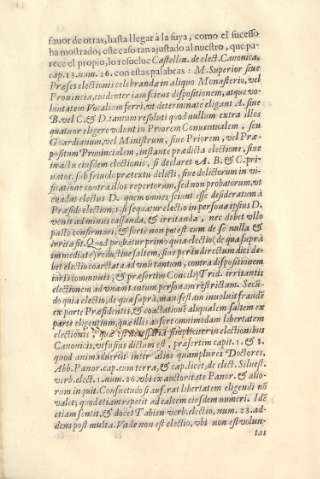 fauor de otras, hasta llegar à la suya, como el sucesso
ha mostrado, este caso tan ajustado al nuestro, que pa-
rece el propio, lo resuelue Castellin. de elect. Canonica,
cap. 13. num. 26. con estas palabras: M. Superior siue
Præses electionis celebranda in aliquo Monasterio, vel
Prouincia, eo detentam suam dispositionem, atque vo-
luntatem Vocalium ferri, vt determinatè eligant A. siue
B. vel C. & D. tantum resoluti quod nullum extra illos
quatuor eligere volent in Priorem Conuentualem, seu
Guardianum, vel Ministrum, siue Priorem, vel Præ-
positum Prouincialem, instante prædicta electione, siue
in actu eiusdem electionis, si declaret A. B. & C. pri-
uatos, sub friuolo prætextu delicti, siue delictorum in vi-
sitatione contra illos repertorum, sed non probatorum, vt
euadat electus D. quem nouerit esse desideratum à
Præside electionis, si sequatur electio in persona ipsius D.
venit ad minus cassanda, & irritanda, nec debet vllo
pacto confirmari, & fortè non potest cum de se nulla &
irrita sit. Quod probatur primò quia electio, de qua suprà
immediatè reductiue saltem, siue per indirectum dici de-
bet electio coarctata ad vnum tantom, contra dispositionem
iuris communis, & præsertim Concilij Trid. irritantis
electionem ad vnam tantum personam restrictam. Secun-
do quia electio, de qua suprà, manifestam inuoluit fraudẽ
ex parte Præsidentis, & coactationẽ aliqualem saltem ex
parte eligentium, quæ illis aufert omnimodam libertatem
electionis, quæ est necessaria simpliciter in electionibus
Canonicis, vt sæpius dictum est, præsertim capit. 1. & 2.
quod animaduertit inter alios quamplures Doctores,
Abb. Panor. cap. cum terra, & cap. licet, de elect. Siluest.
verb. elect. 1. num. 26. vbi ex auctoritate Panor. & alio-
rum inquit. Consuetudo si auferat libertatem eligendi nõ
valet, quod etiam repetit ad calcem eiusdem numeri. Idẽ
etiam sentit, & docet Tabien verb. electio, num. 28. ad-
dens post multa. Vnde non est electio, vbi non est volun-
tas